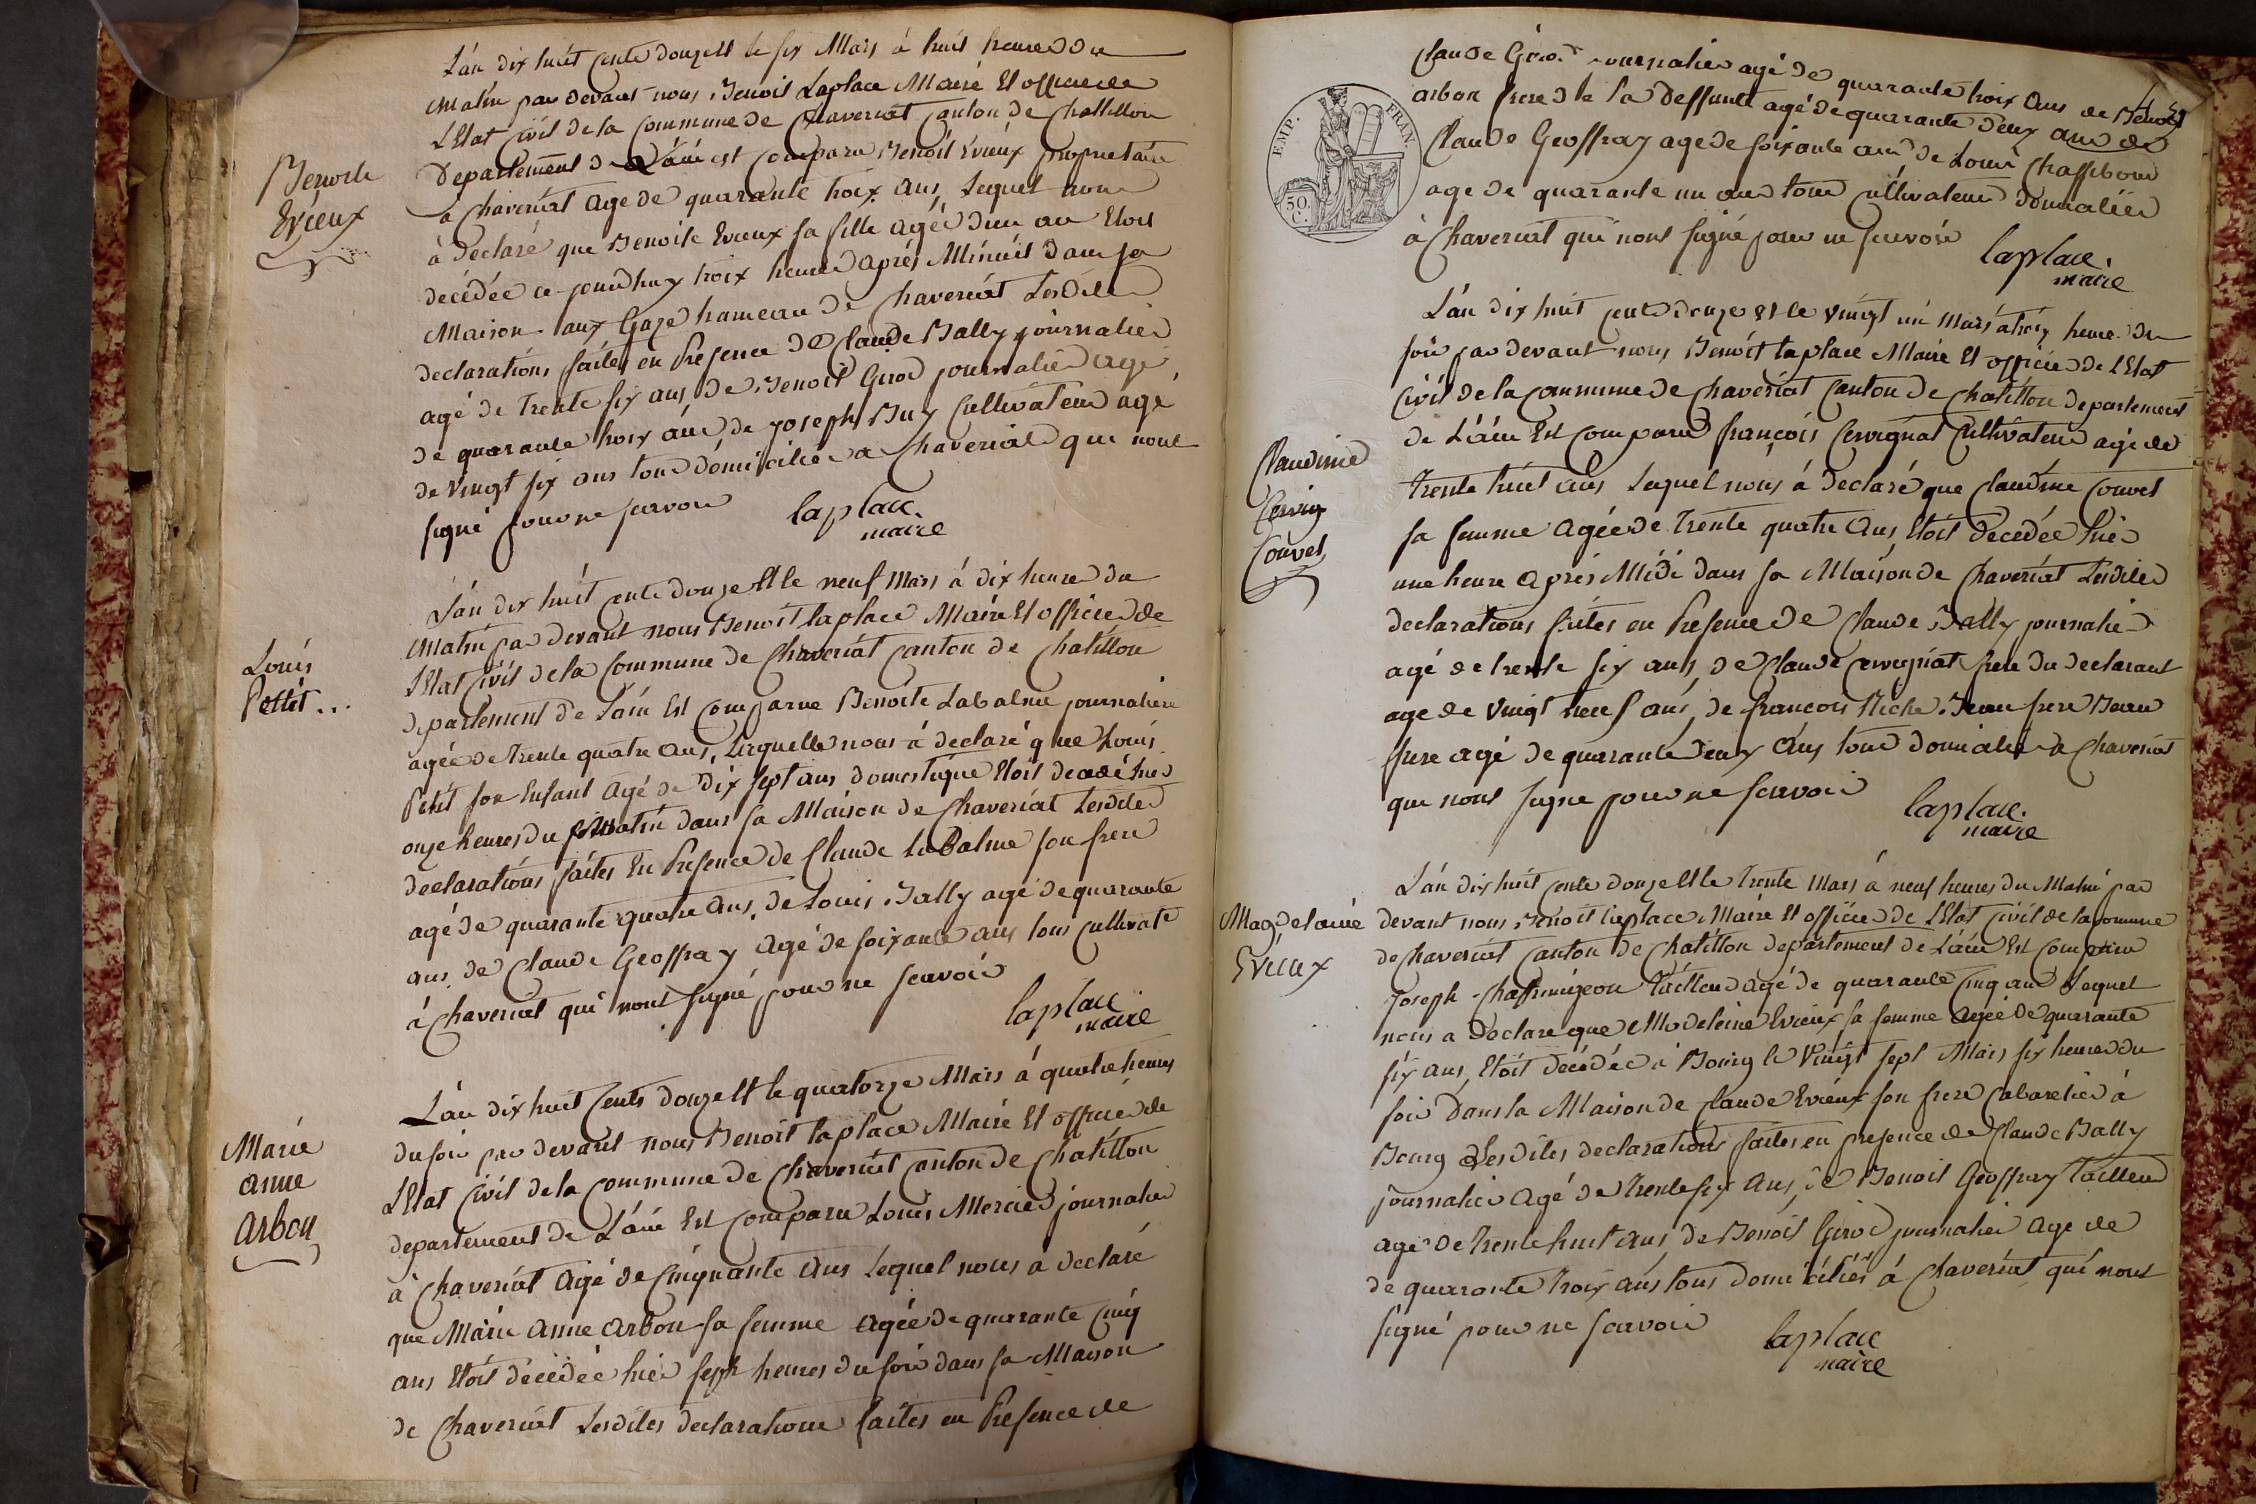 L'án dix huit cents douze Et le six Mars à huit heures du
Matin par devant nous Benoit Laplace Maire Et officier de
L'Etat Civil de la Commune de Chaveriat Canton de Chatillon
Departement de L'áin est comparu Benoit Evieux proprietaire
à Chaveriat age de quarante troix ans, Lequel nous
à Declaré que Benoite Evieux sa fille agée d'un an Etoit
decédée ce jourdhuy troix heures après Minuit dans sa
Maison aux Gaze hameau de Chaveriat Lesdites
declarations faites en Presence de Claude Bally journalier
agé de Trente six ans de Benoit Girod journalier agé
de quarante troix ans de joseph Buy Cultivateur agé
de Vingt six ans tous domicilies a Chaveriat qui nont
signé pour ne scavoir
laplace
maire
Benoite
Evieux
L'án dix huit cents douze Et le neuf Mars à dix heures du
Matin par devant nous Benoit laplace Maire Et officier de
L'Etat Civil de la Commune de Chaveriat canton de Chatillon
departement de L'áin Est comparue Benoite Labalme journaliere
agée de Trente quatre ans, Laquelle nous à declaré que Louis
Petit son Enfant agé de Dix sept ans domestique Etoit decedé hier
onze heures du Matin dans sa Maison de Chaveriat Lesdites
declarations faites En Presence de Claude LaBalme son frere
agé de quarante quatre ans, de Louis Bally agé de quarante
ans, de Claude Geoffray agé de soixante ans tous Cultivate
à Chaveriat qui nont signé pour ne scavoir
laplace
maire
Louis
Pettit...
L'án dix huit Cents douze Et le quatorze Mars à quatre heures
du soir par devant nous Benoit laplace Maire Et officier de
L'Etat Civil de la Commune de Chaveriat canton de Chatillon
departement de L'áin Est Comparu Louis Mercier journalier
à Chaveriat agé de Cinquante ans Lequel nous a declaré
que Marie Anne Arbon sa femme agée de quarante Cinq
ans Etoit décédée hier sept heures du soir dans sa Maison
de Chaveriat Lesdites declarations faites en Presence de
Marie
anne
arbon
Claude Girod journalier agé de quarante troix ans de Benoit
arbon frere de la Deffunte agé de quarante Deux ans de
Claude Geoffray age de soixante ans de Louis
age de quarante un ans tous Cultivateurs Domicilies
à Chaveriat qui nont signé pour ne scavoir
laplace
maire
EMP. FRAN.
50.
C.
L'án dix huit cents douze et le vingt un Mars à troix heures du
soir par devant nous Benoit laplace Maire Et officier de L'Etat
Civil de la Commune de Chaveriat Canton de Chatillon departement
de L'áin Est Comparu françois Cervignat Cultivateur agé de
Trente huit ans Lequel nous à Declaré que Claudine Couvet
sa femme agée de Trente quatre ans, Etoit decédée hier
une heure après Midi dans sa Maison de Chaveriat Lesdites
declarations faites en Presence de Claude Bally journalier
agé de trente six ans, de Claude Cervignat frere du declarant
age de Vingt neuf ans, de francois beau frere Beau
frere agé de quarante Deux ans tous Domicilies à Chaveriat
qui nont signe pour ne scavoir
laplace
maire
Claudine
Cervig
Couvet
L'án dix huit cents douze Et le Trente Mars à neuf heures du Matin par
devant nous Benoit laplace Maire Et officier de L'Etat Civil de la Commune
de Chaveriat Canton de Chatillon departement de L'áin Est Comparu
joseph Tailleur agé de quarante Cinq ans Lequel
nous a Declare que Madeleine Evieux sa femme agée de quarante
six ans, Etoit decédée à Bourg le Vingt sept Mars six heures du
soir Dans la Maison de Claude Evieux son frere Cabaretier à
Bourg Lesdites declarations faites en presence de Claude Bally
journalier agé de Trente six ans, de Benoit Geoffray Tailleur
agé de Trente huit ans de Benoit Girod journalier age de
de quarante troix ans tous domiciliés à Chaveriat, qui nont
signé pour ne scavoir
laplace
maire
Magdelaine
Evieux